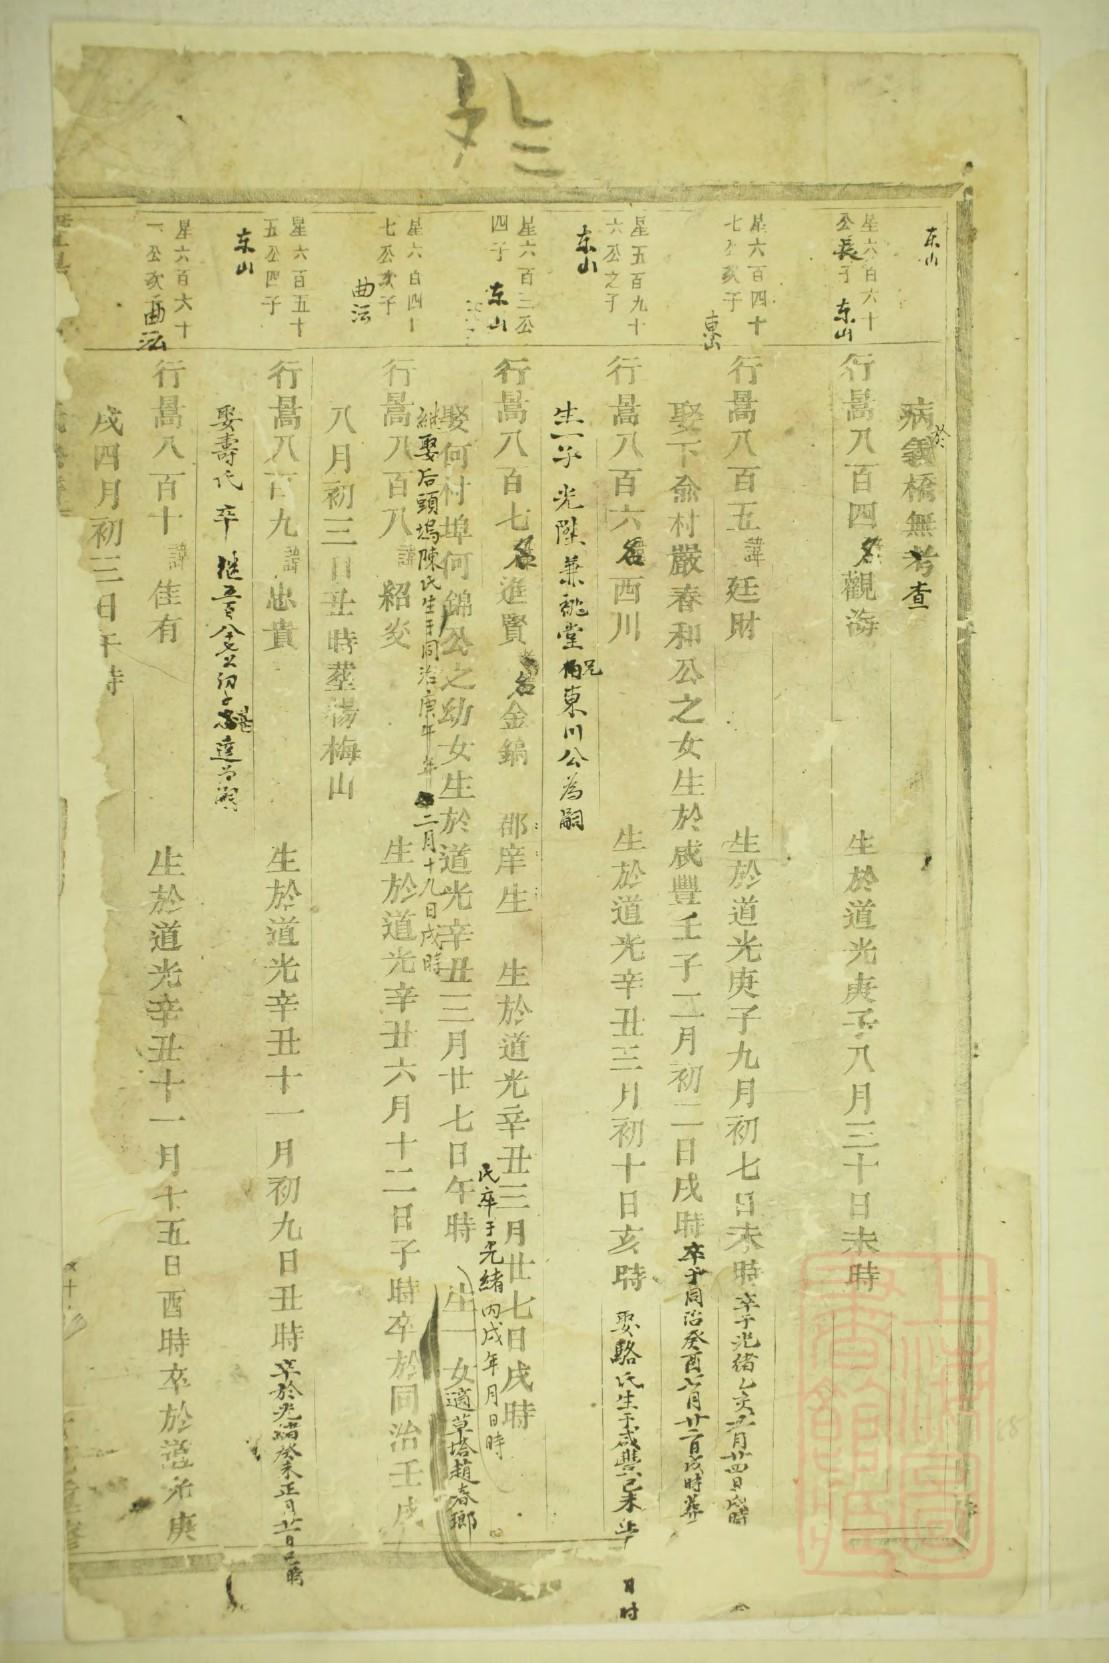 东山
病於義橋無考查
星六百六十公長子
东山
行暠八百四名觀海
生於道光庚子八月三十日未時
星六百四十七公次子
行暠八百五諱廷財
生於道光庚子九月初七日未時卒于光緒乙亥五月廿四日戌時
娶下俞村嚴春和公之女生於咸豐壬子二月初二日戌時卒于同治癸酉六月廿二日戌時葬
星五百九十六公之子
东山
行暠八百六名西川
生於道光辛丑三月初十日亥時
娶駱氏生于咸豐己未年 日时
生一子光陞兼祧堂兄東川公為嗣
星六百三公四子
东山
行暠八百七名進賢
名金鎬
郡庠生
生於道光辛丑三月廿七日戌時
氏卒于光緒丙戌年月日時
娶何村埠何錦公之幼女生於道光辛丑三月廿七日午時
生一女適草塔趙春瑯
継娶后頭塢陳氏生于同治庚午年二月十九日戌時
星六百四十七公次子
曲沄
行暠八百八諱紹炎
生於道光辛丑六月十二日子時卒於同治壬戌
八月初三日丑時塟湯梅山
星六百五十五公四子
东山
行暠八百九諱忠貴
生於道光辛丑十一月初九日丑時卒於光緒癸未正月廿日巳時
娶壽氏卒
星六百六十一公次子
曲沄
行暠八百十諱佳有
生於道光辛丑十一月十五日酉時卒於道光庚
戌四月初三日午時